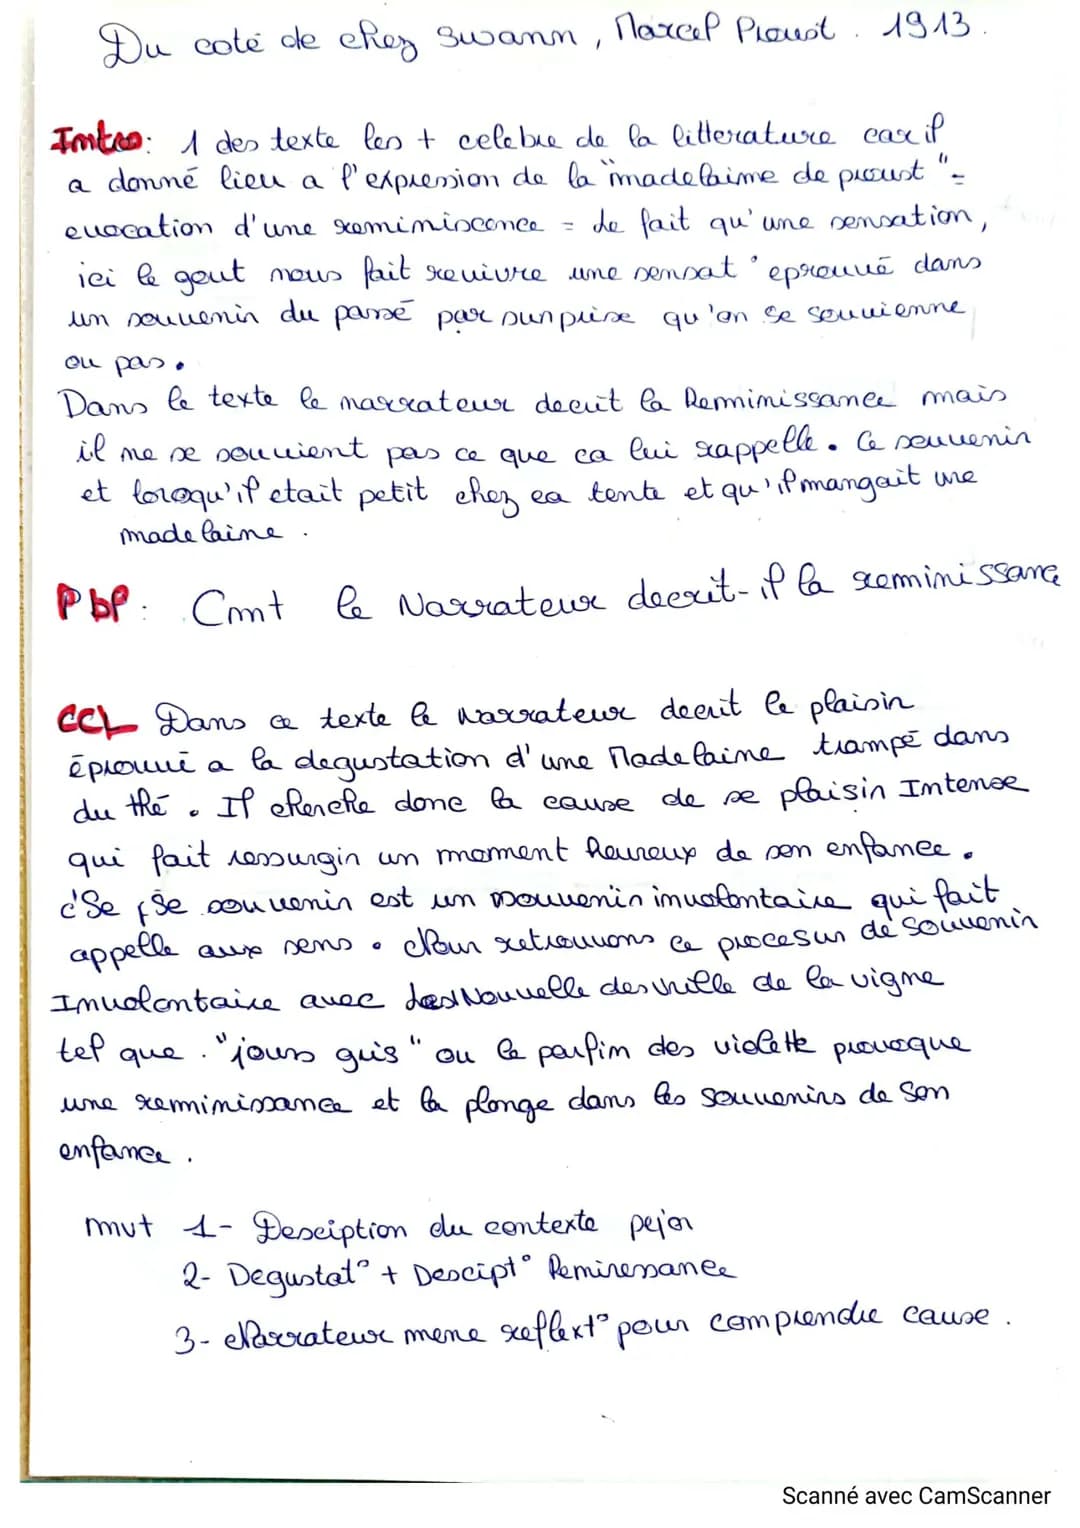 Du coté de chez Swann, Marcel Proust. 1913.
Intro: 1 des texte les + celebre de la litterature car il
a donné lieu a l'expression de la "madelaine de proust" =
evocation d'une reminiscence = de fait qu'une sensation,
ici le gout nous fait revivre une sensat° eprouvé dans
un souvenir du passé par surprise qu'on se souvienne
ou pas.
Dans le texte le narrateur decrit la Reminissance mais
il ne se souvient pas ce que ca lui rappelle. Ce souvenir
et lorsqu'il etait petit chez sa tente et qu'il mangait une
madelaine.
Pbl: Cmnt le Narrateur decrit-il la reminissance
CCL Dans ce texte le narrateur decrit le plaisir
éprouvé a la degustation d'une Madelaine trampé dans
du thé. Il cherche donc la cause de se plaisir Intense
qui fait ressurgir un moment heureux de son enfance.
c'Se, Se souvenir est un souvenir involontaire qui fait
appelle aux sens. Nour retrouvons ce procesur de souvenir
Involontaire avec Les Nouvelle des vrille de la vigne
tel que. "jours gris" ou le parfim des violette provoque
une reminissance et la plonge dans les souvenirs de son
enfance.
mvt 1- Desciption du contexte pejor
2- Degustat° + Descipt° Reminessance
3- Narrateur mene reflext° pour comprendre cause.
Scanné avec CamScanner